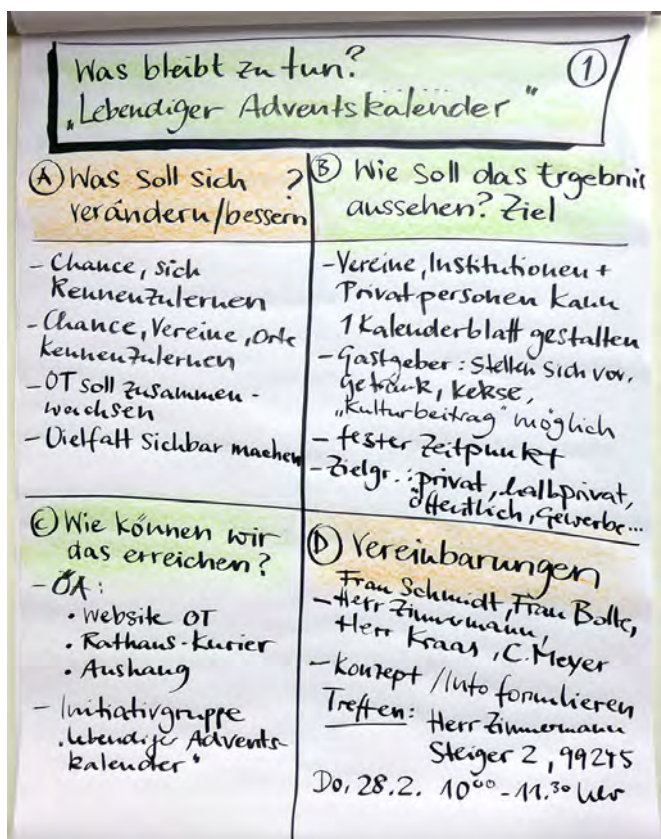 Was bleibt zu tun? ①
„Lebendiger Adventskalender"
Ⓐ Was soll sich ?
verändern/bessern
- Chance, sich
kennenzulernen
- Chance, Vereine, Orte
kennenzulernen
- OT soll zusammen-
wachsen
- Vielfalt sichbar machen
Ⓑ Wie soll das Ergebnis
aussehen? Ziel
- Vereine, Institutionen +
Privatpersonen kann
1 Kalenderblatt gestalten
- Gastgeber: Stellen sich vor,
Getränk, Kekse,
„Kulturbeitrag" möglich
- fester Zeitpunkt
- Zielgr.: privat, halbprivat,
öffentlich, Gewerbe...
Ⓒ Wie können wir
das erreichen?
- ÖA:
• Website OT
• Rathaus-Kurier
• Aushang
- Initiativgruppe
„Lebendiger Advents-
kalender"
Ⓓ Vereinbarungen
Frau Schmidt, Frau Bolle,
- Herr Zimmermann,
Herr Kraas, C. Meyer
- Konzept / Info formulieren
Treffen: Herr Zimmermann
Steiger 2, 99245
Do, 28.2. 10⁰⁰ - 11.³⁰ Uhr